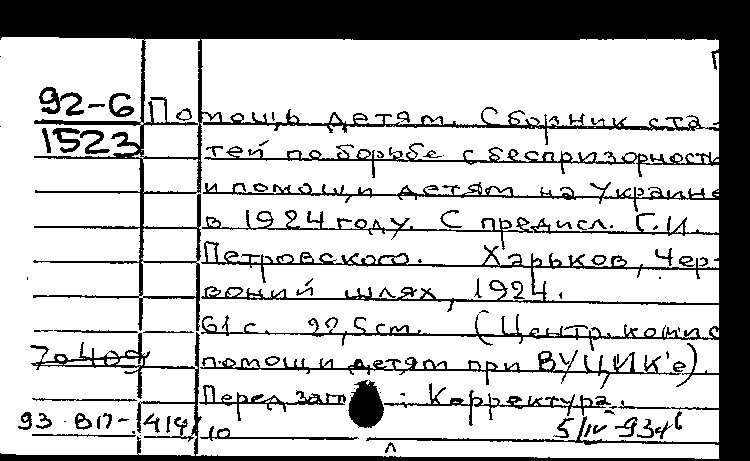 92-6 Помощь детям. Сборник ста-
1523 тей по борьбе с беспризорности
и помощи детям на Украине
в 1924 году. С предисл. Г.И.
Петровского. Харьков, Чер-
воний шлях, 1924.
61 с. 22,5 см. (Центр. комис
70409 помощи детям при ВУЦИК'е).
Перед заг : Корректура.
93 в17- 414/10 5/IV-934